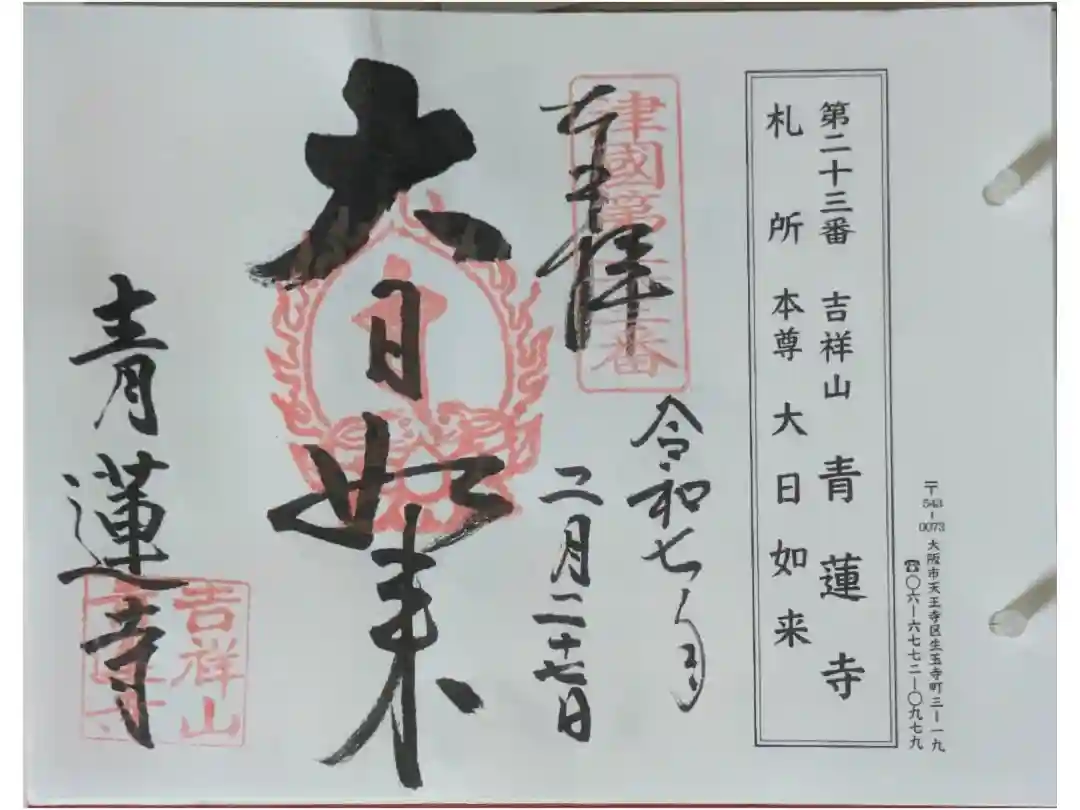 第二十三番 吉祥山 青蓮寺
札所本尊大日如来
〒543-0073 大阪市天王寺区生玉寺町三ー一九
☎〇六ー六七七二ー〇九七九
奉拝
令和七年
二月二十七日
大日如来
青蓮寺
吉祥山